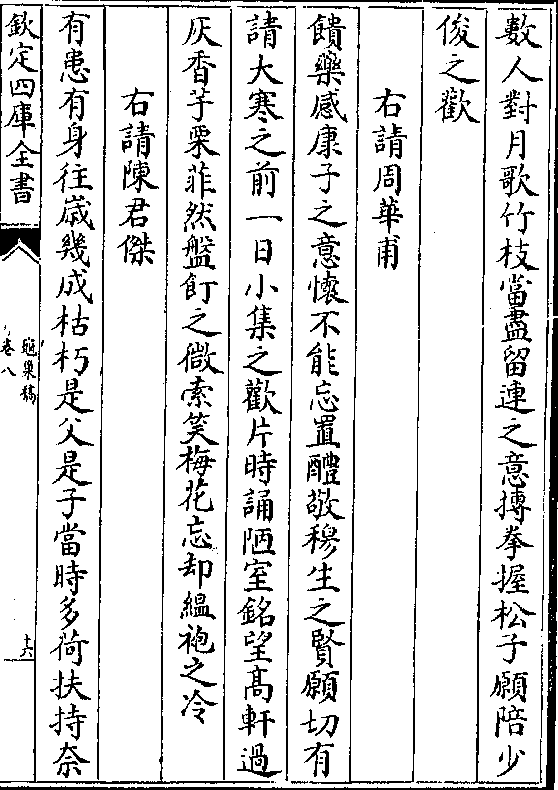 數人對月歌竹枝當盡留連之意摶拳握松子願陪少
俊之歡
右請周華甫
饋藥感康子之意懷不能忘置醴敬穆生之賢願切有
請大寒之前一日小集之歡片時誦陋室銘望髙軒過
仄香芋栗菲然盤飣之微索笑梅花忘却緼袍之冷
右請陳君傑
有患有身往嵗幾成枯朽是父是子當時多荷扶持奈
欽定四庫全書
龜巢稿
卷八
十六